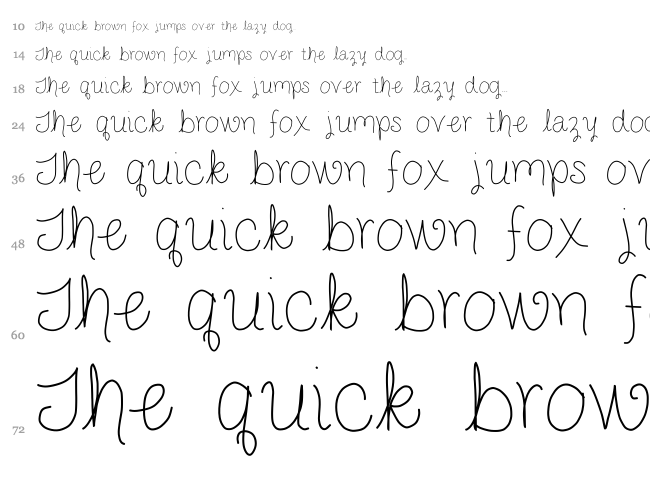 10 The quick brown fox jumps over the lazy dog.
14 The quick brown fox jumps over the lazy dog.
18 The quick brown fox jumps over the lazy dog.
24 The quick brown fox jumps over the lazy dog
36 The quick brown fox jumps ov
48 The quick brown fox ju
60 The quick brown f
72 The quick brow